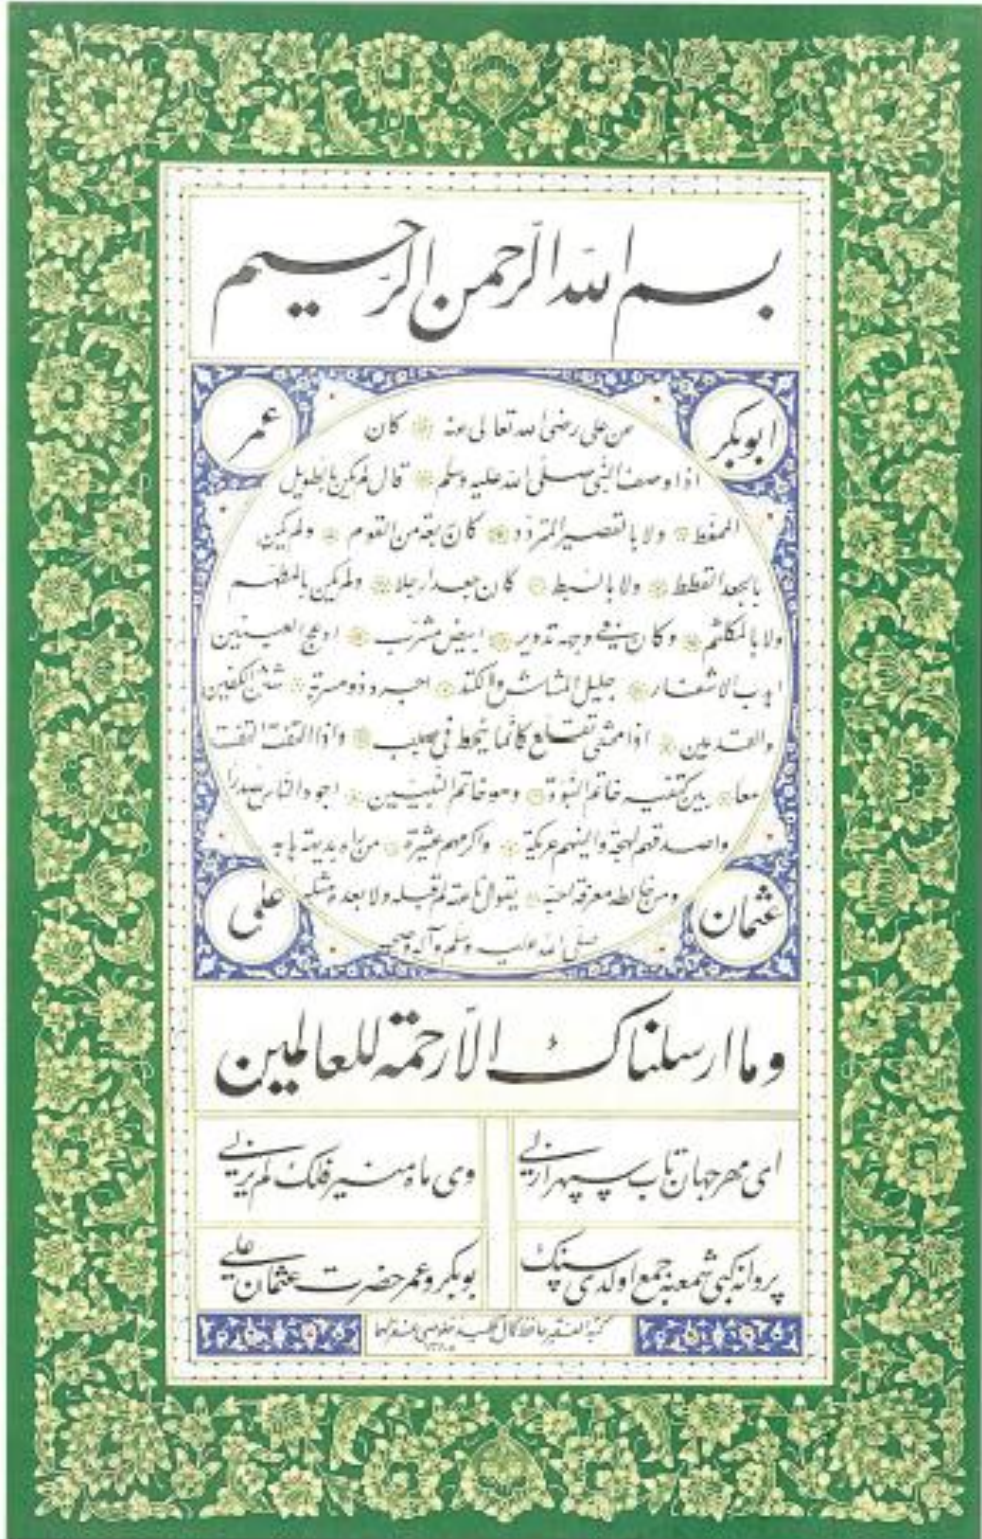 بسم الله الرّحمن الرّحيم
ابوبكر
عمر
عن علی رضی الله تعالی عنه كان
اذا وصف النّبی صلّی الله علیه وسلّم قال لم یكن بالطویل
الممغط ولا بالقصیر المتردّد كان ربعة من القوم ولم یكن
بالجعد القطط ولا بالسبط كان جعدا رجلا ولم یكن بالمطهّم
ولا بالمكلثم وكان فی وجهه تدویر ابیض مشرب ادعج العینین
اهدب الاشفار جلیل المشاش والكتد اجرد ذو مسربة شثن الكفین
والقدمین اذا مشی تقلّع كانّما ینحط فی صبب واذا التفت التفت
معا بین كتفیه خاتم النبوّة وهو خاتم النّبیین اجود النّاس صدرا
واصدقهم لهجة والینهم عریكة واكرمهم عشیرة من رآه بدیهة هابه
ومن خالطه معرفة احبّه یقول ناعته لم ار قبله ولا بعده مثله
صلّی الله علیه وسلّم وآله وصحبه
عثمان
علی
وما ارسلناك الاّ رحمة للعالمین
ای مهر جهان تاب سپهر ازلی
وی ماه منیر فلك لم یزلی
پروانه كبی شمعنه جمع اولدی سنك
بوبكر و عمر حضرت عثمان علی